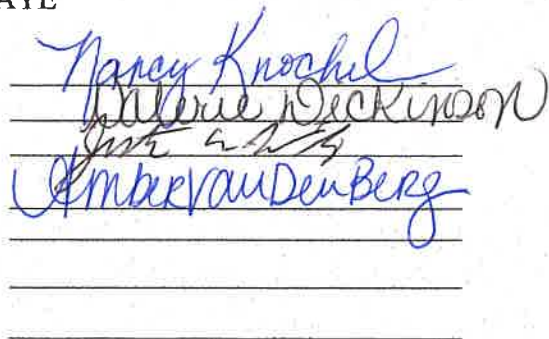 AYE
Nancy Knochel
Valerie Dickinson
Amber Van Den Berg